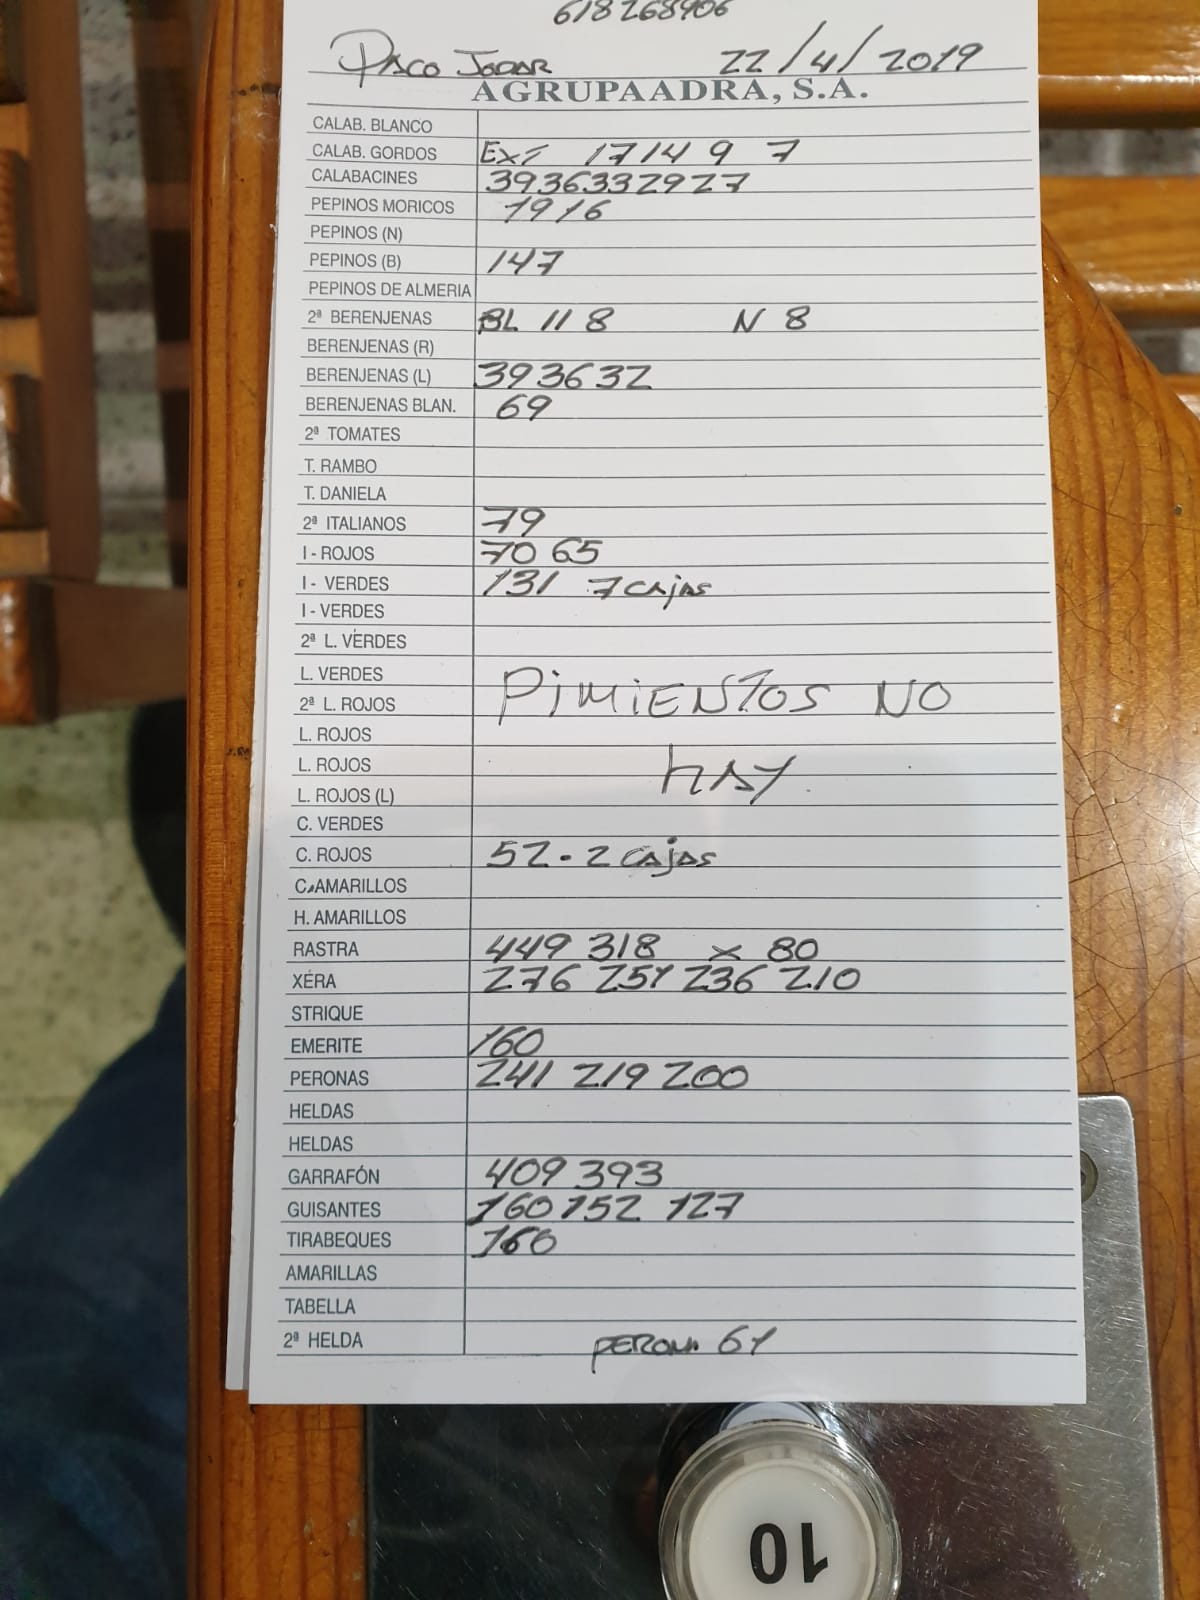 618268906
PACO JODAR 22/4/2019
AGRUPAADRA, S.A.
CALAB. BLANCO
CALAB. GORDOS EXT 1714 9 7
CALABACINES 3936332927
PEPINOS MORICOS 1916
PEPINOS (N)
PEPINOS (B) 147
PEPINOS DE ALMERIA
2ª BERENJENAS BL 11 8 N 8
BERENJENAS (R)
BERENJENAS (L) 393632
BERENJENAS BLAN. 69
2ª TOMATES
T. RAMBO
T. DANIELA
2ª ITALIANOS 79
I - ROJOS 70 65
I - VERDES 131 7 CAJAS
I - VERDES
2ª L. VERDES
L. VERDES
PIMIENTOS NO
2ª L. ROJOS
L. ROJOS
L. ROJOS HAY
L. ROJOS (L)
C. VERDES
C. ROJOS 52 - 2 CAJAS
C. AMARILLOS
H. AMARILLOS
RASTRA 449 318 x 80
XÉRA 276 251 236 210
STRIQUE
EMERITE 160
PERONAS 241 219 200
HELDAS
HELDAS
GARRAFÓN 409 393
GUISANTES 160 152 127
TIRABEQUES 160
AMARILLAS
TABELLA
2ª HELDA PERONA 61
10